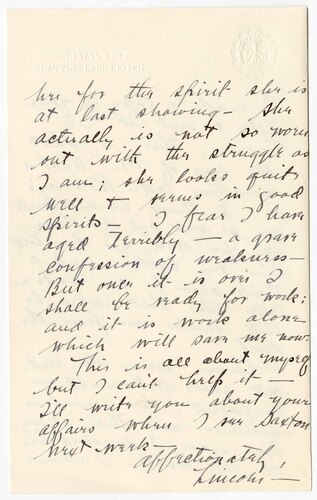 her for the spirit she is
at last showing - She
actually is not so worn
out with the struggle as
I am; she looks quite
well & seems in good
spirits - I fear I have
aged terribly - a grave
confession of weakness -
But once it is over I
shall be ready for work;
and it is work alone
which will save me now.
This is all about myself
but I can't help it -
I'll write you about your
affairs when I see Saxton
next week -
Affectionately,
Lincoln -